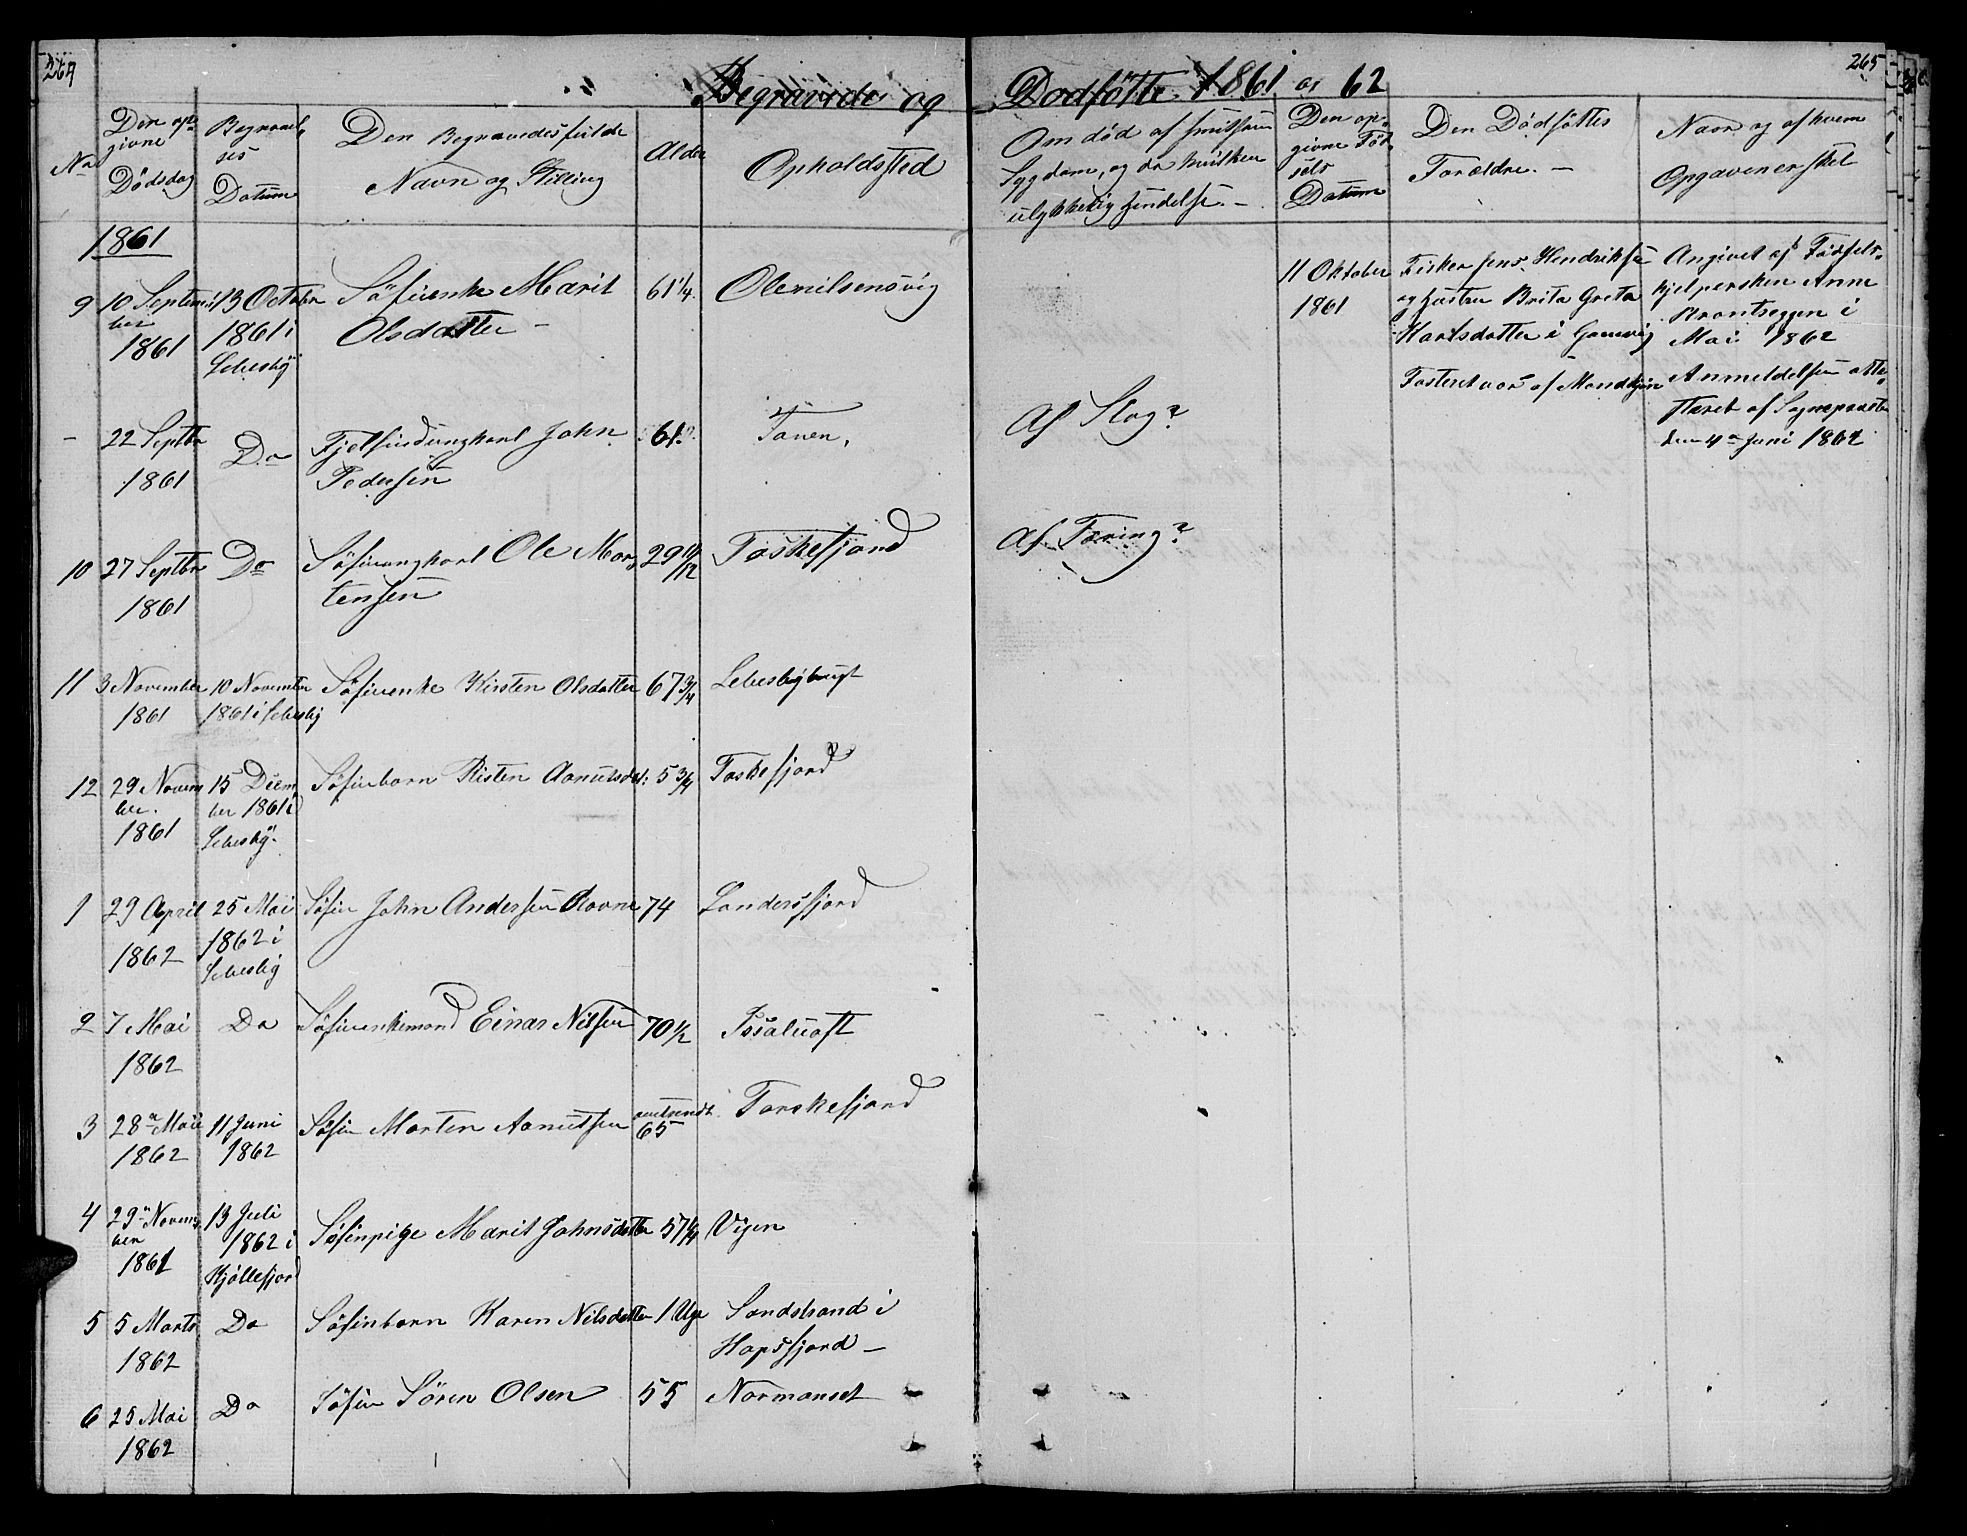 264
Begravede og Dødfødte 1861 og 62
265
No
Den op=
givne
Dödsdag
Begravel,
ses
Datum
Den Begravedes fulde
Navn og Stilling
Alder
Opholdssted
Om död af smitsom
Sygdom, og da hvilken
ulykkelig hændelse. -
Den op=
givne Föd,
sels
Datum
Den Dødföttes
Forældre. -
Navn og af hvem
Opgaven er skeet
1861
9 10 Septem
ber
1861
13 October
1861 i
Lebesby
Söfinenke Marit
Olsdatter -
61 1/4
Olenilsensvig
11 Oktober
1861
Fisker Jens Hendriksen
og hustru Brita Greta
Karlsdatter i Gamvig
Fosteret var af Mandkjøn
Angivet af Födsels-
hjelpersken Anne
i
Mai 1862
Anmeldelsen atte,
steret af Sognepræsten
den 4de Juni 1862
- 22 Septbr
1861
Do
Fjelfinungkarl John
Pedersen
61
Tanen,
Af Slag?
10 27 Septbr
1861
Do
Söfinungkarl Ole Mor,
tensen
29 11/12
Toskefjord
Af Tæring?
11 3 November
1861
10 November
1861 i Lebesby
Söfinenke Kirsten Olsdatter
67 3/4
Lebesbybugt
12 29 Novem
ber.
1861
15 Decem
ber 1861 i
Lebesby.
Söfinbarn Risten Aanutsdat:
5 3/4
Toskefjord
1 29 April
1862
25 Mai
1862 i
Lebesby
Söfin John Andersen Ravna
74
Landersfjord
2 7 Mai
1862
Do
Söfinenkemand Einar Nilsen
70 1/2
3 28de Mai
1862
11 Juni
1862
Söfin Morten Aanutsen
omtrendt
65
Torskefjord
4 29de Novem
ber
1861
13 Juli
1862 i
Kjöllefjord
Söfinpige Marit Johnsdatter
57 1/4
Vigen
5 5 Marts
1862
Do
Söfinbarn Karen Nilsdatter
1 Uge
Sandstrand i
Hopsfjord -
6 25 Mai
1862
Do
Söfin Sören Olsen
55
Normanset